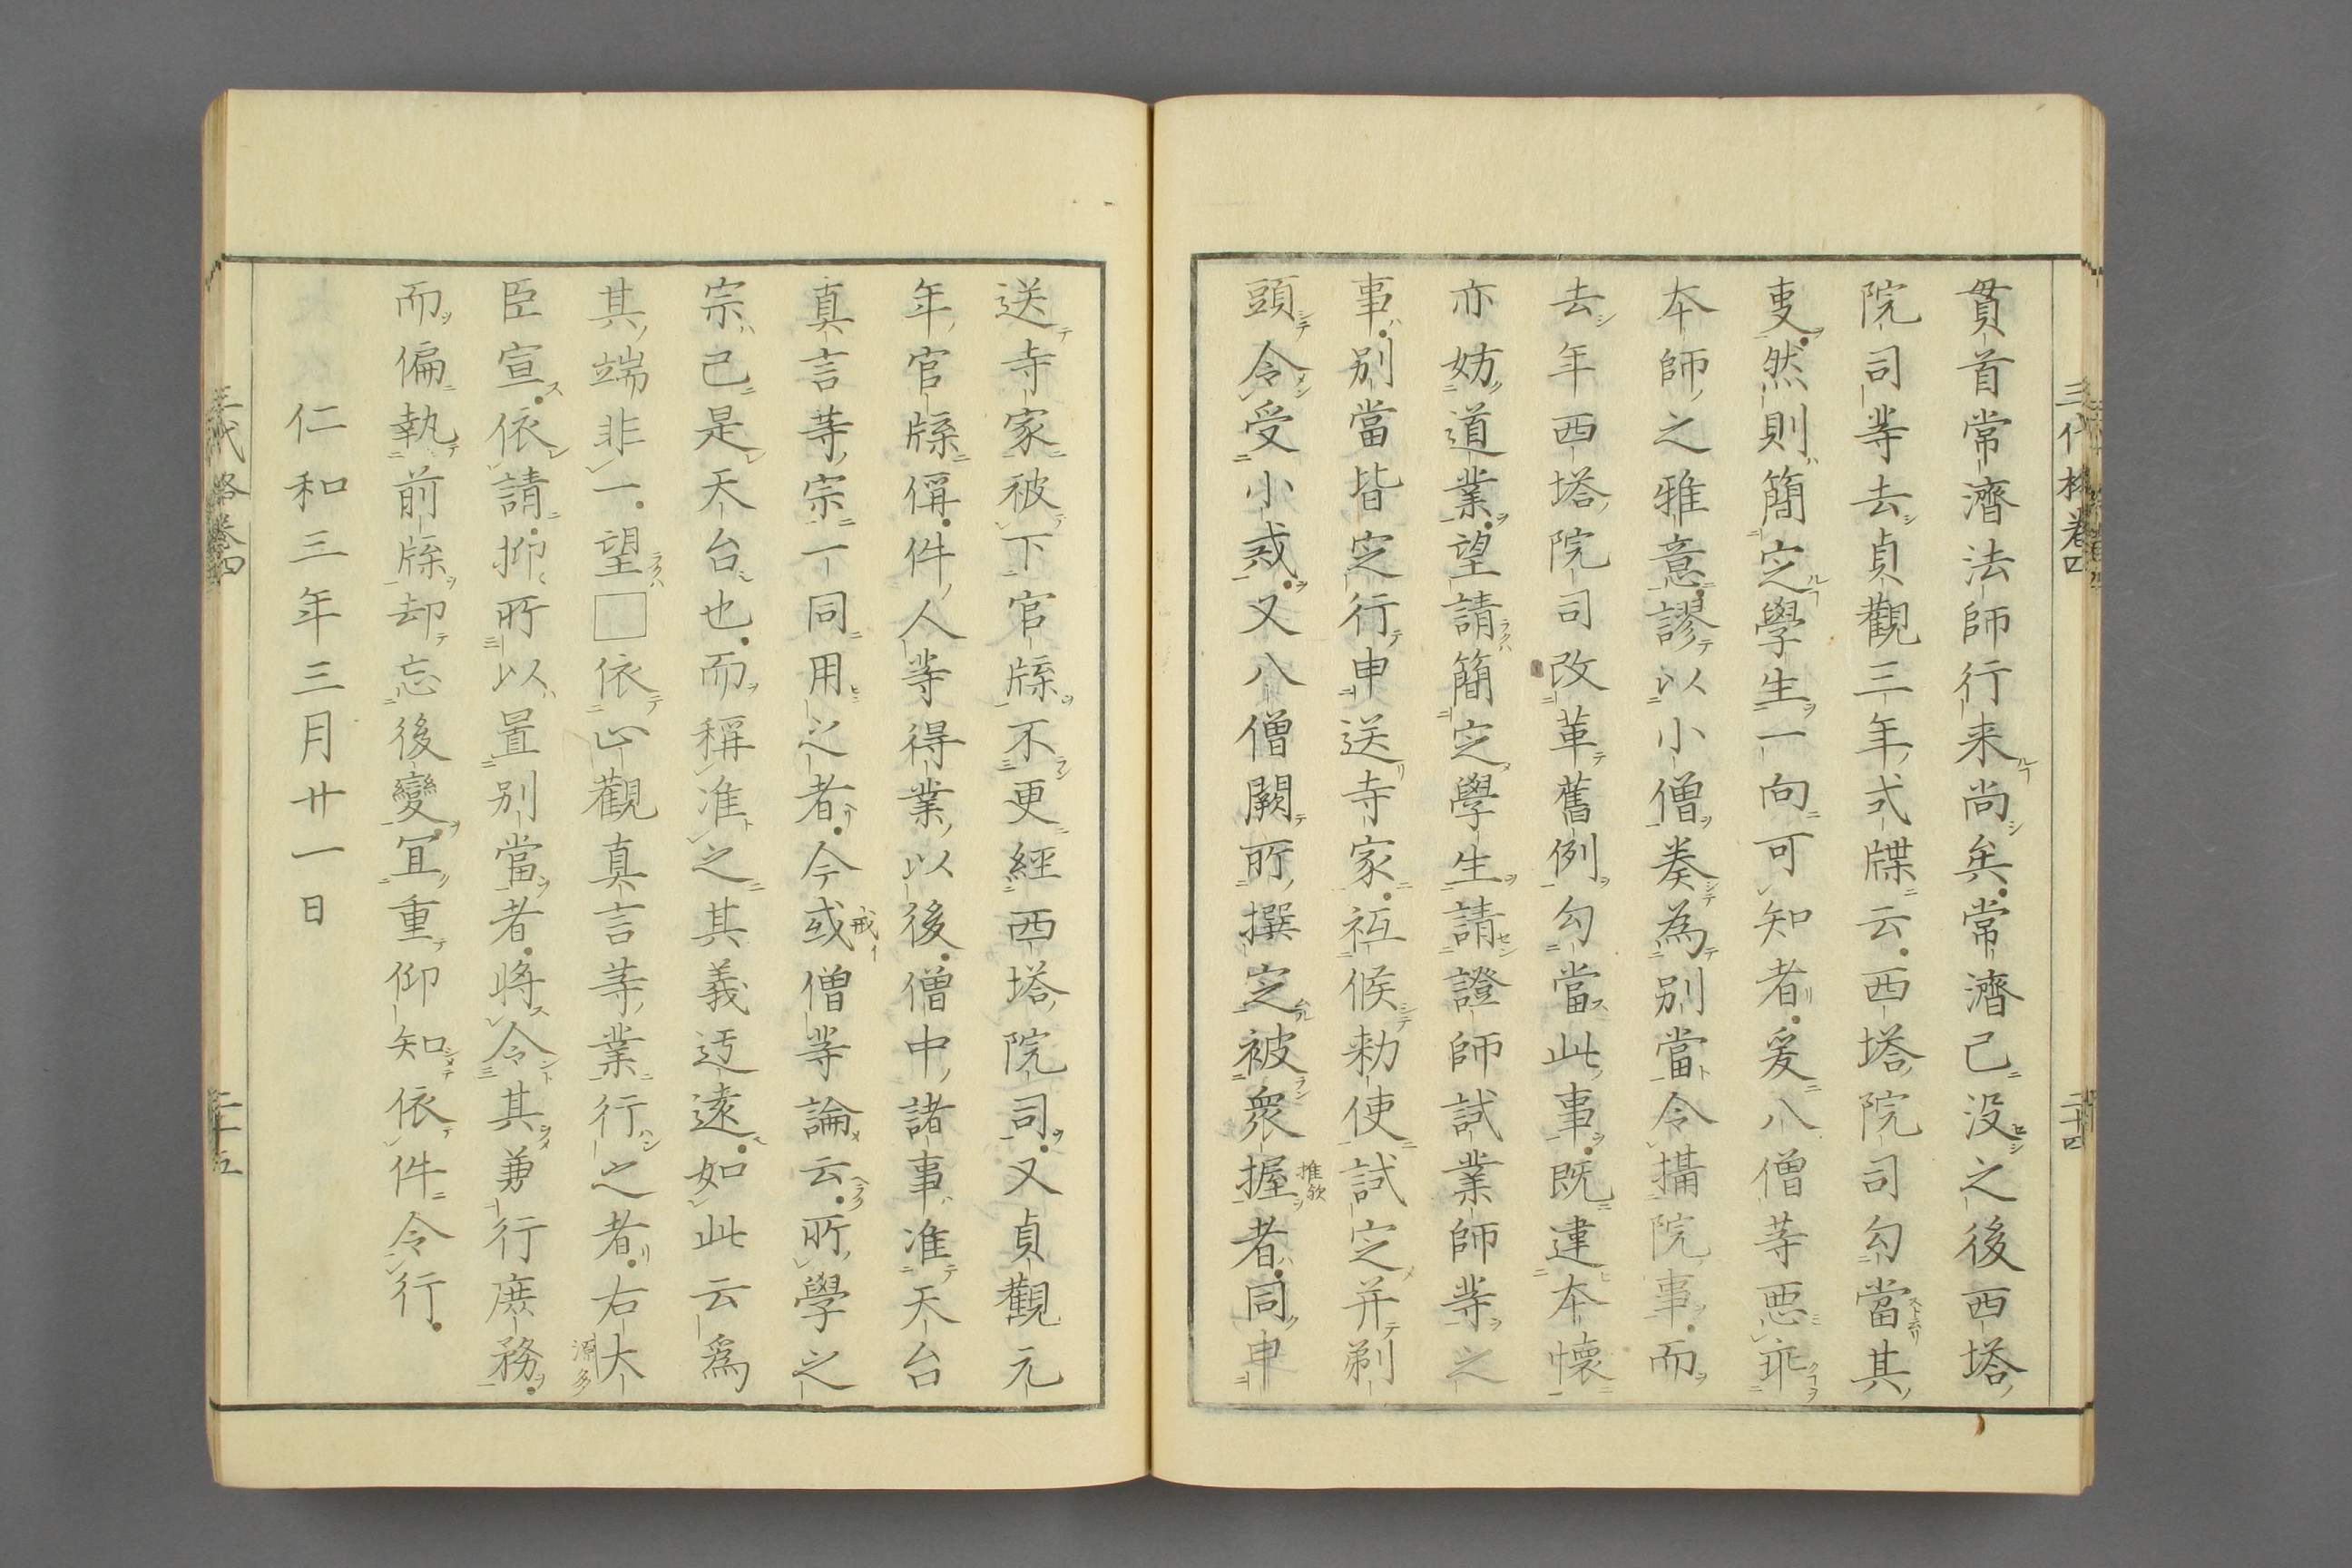 三代格卷四
二十四
貫首常濟法師行来尚矣常濟已没之後西塔
院司等去貞觀三年式牒云西塔院司勾當其
叓然則簡定學生一向可知者爰八僧等悪乖
本師之雅意謬以小僧奏為別當令攝院事而
去年西塔院司改革舊例勾當此事既違本懐
亦妨道業望請簡定學生請證師試業師等之
事別當皆定行申送寺家祗候勅使試定并剃
頭令受小戒又八僧闕所撰定被衆握者同申
推欤
送寺家被下官牒不更經西塔院司又貞觀元
年官牒偁件人等得業以後僧中諸事准天台
真言等宗一同用之者今或僧等論云所學之
戒イ
宗已是天台也而稱准之其義迂遠如此云爲
其端非一望□依止觀真言等業行之者右大
源多
臣宣依請抑所以置別當者将令其兼行庶務
而偏執前牒却忘後變冝重仰知依件令行
仁和三年三月廿一日
三代格卷四
二十五